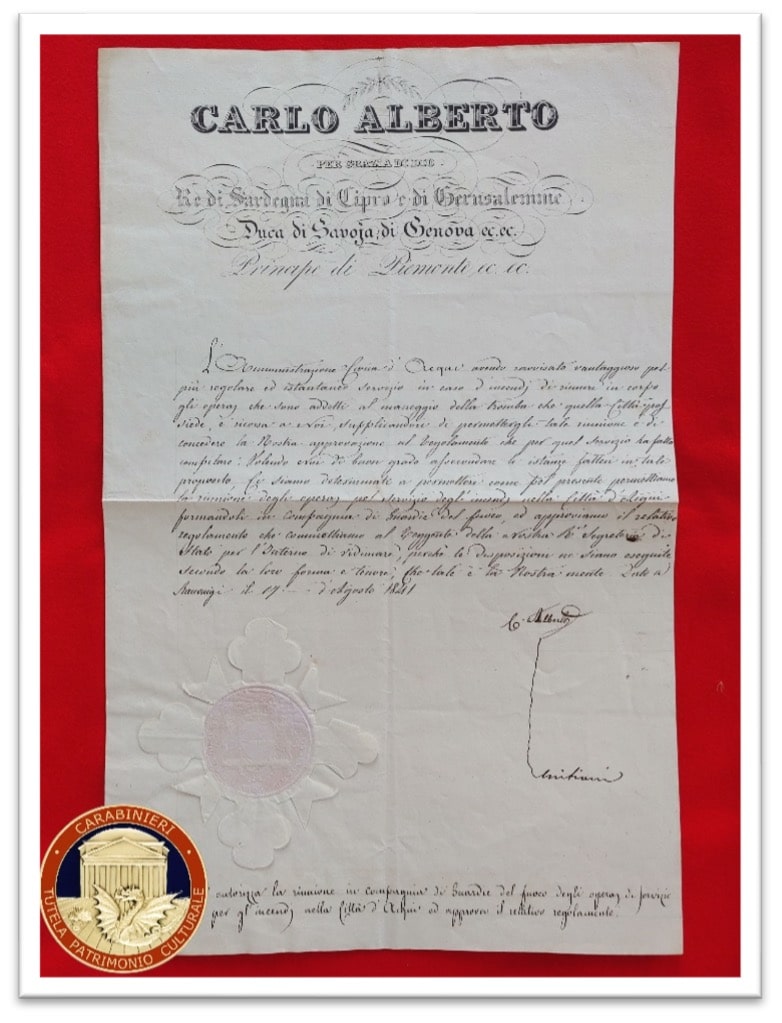 CARLO ALBERTO
PER GRAZIA DI DIO
Re di Sardegna di Cipro e di Gerusalemme
Duca di Savoja, di Genova ec. ec.
Principe di Piemonte ec. ec.
L'Amministrazione Civica d'Acqui avendo ravvisato vantaggioso pel
più regolare ed istantaneo servizio in caso d'incendj di riunire in corpo
gli operaj che sono addetti al maneggio della tromba che quella Città pos-
siede, è ricorsa a Noi, supplicandoci di permettergli tale riunione e di
concedere la Nostra approvazione al Regolamento che per quel servizio ha fatto
compilare: Volendo Noi di buon grado assecondare le istanze fatteci in tale
proposito. Ci siamo determinati a permettere come pel presente permettiamo
la riunione degli operaj pel servizio degl'incendj nella Città d'Acqui
formandoli in Compagnia di Guardie del fuoco, ed approviamo il relativo
regolamento che commettiamo al Reggente della Nostra Segreteria di
Stato per l'Interno di vidimare, perché le disposizioni ne siano eseguite
secondo la loro forma e tenore, Ché tale è la Nostra mente. Dato a
Racconigi il 17 d'Agosto 1841
C. Alberto
autorizza la riunione in Compagnia di Guardie del fuoco degli operaj di servizio
per gl'incendj nella Città d'Acqui ed approva il relativo regolamento.
CARABINIERI
TUTELA PATRIMONIO CULTURALE